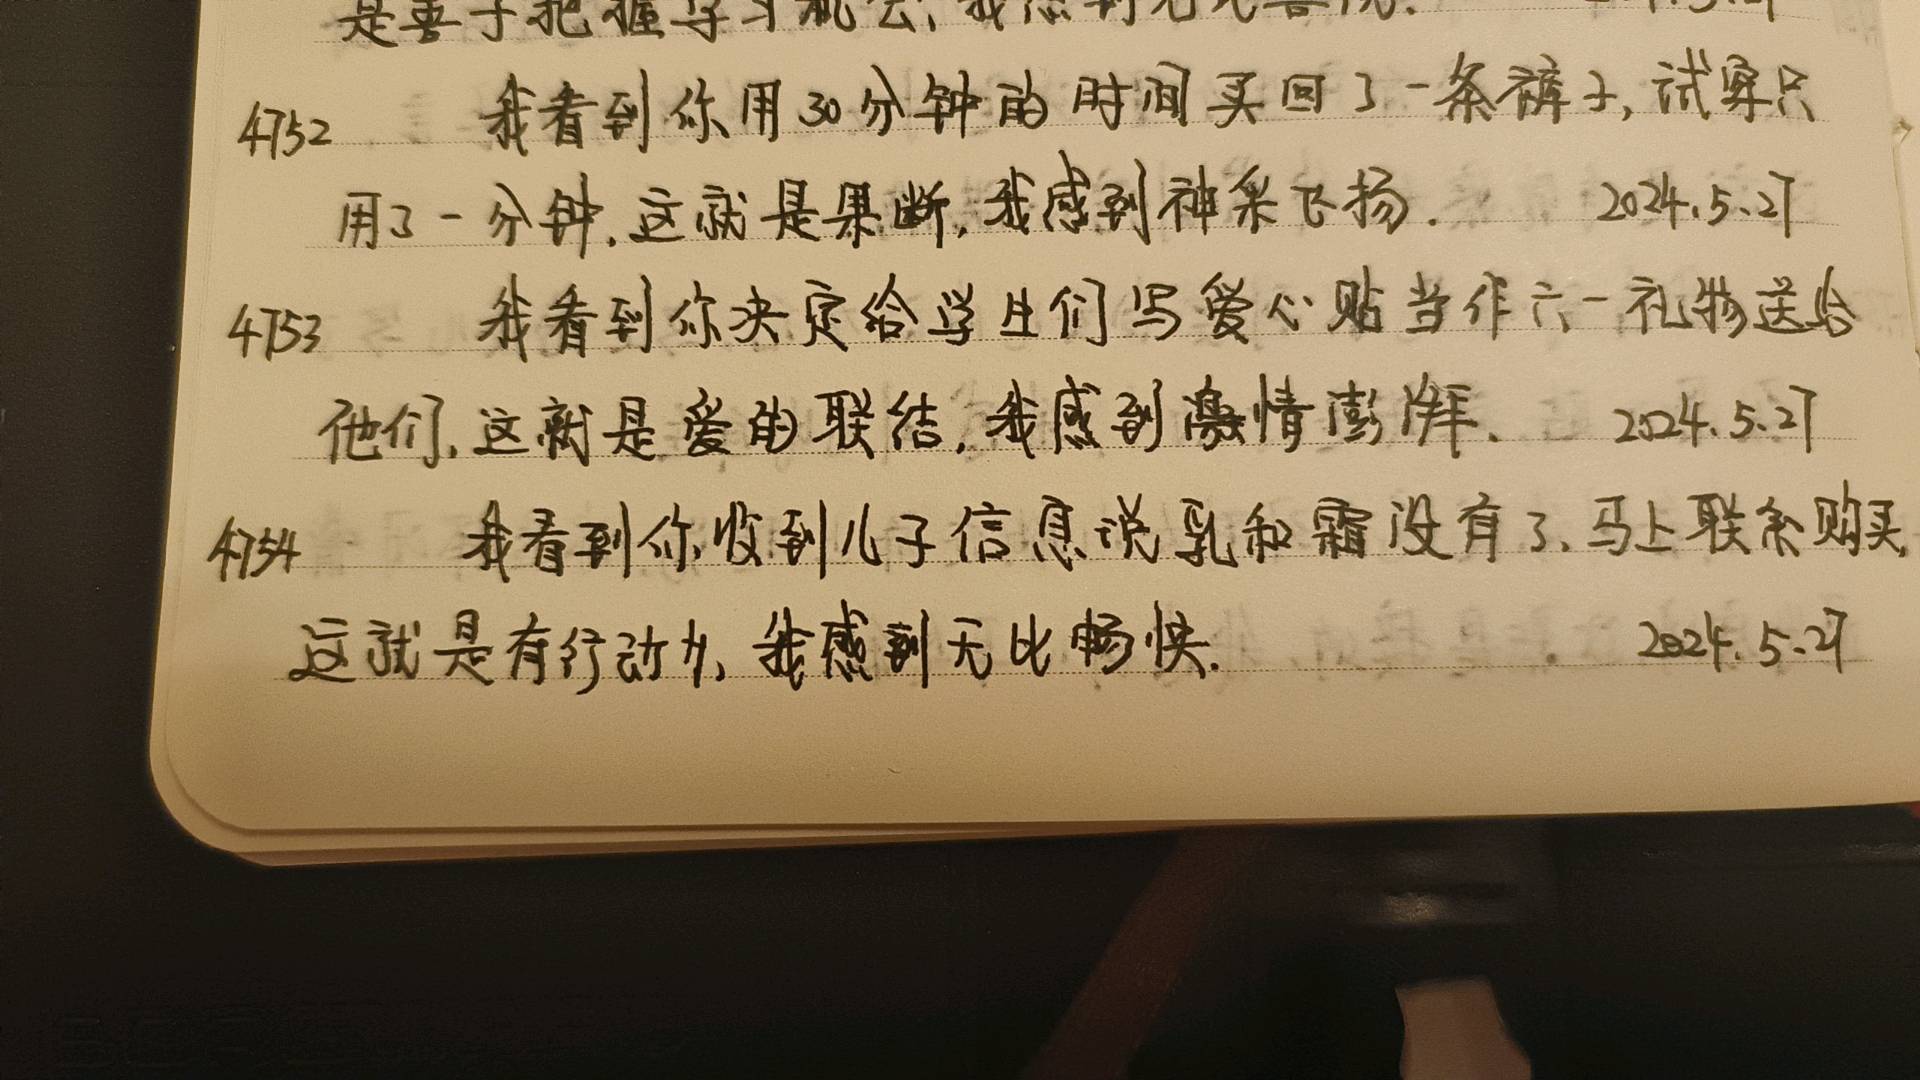 是善于把握学习机会,我感到无比喜悦. 2024.5.27
4752 我看到你用30分钟的时间买回了一条裤子,试穿只
用了一分钟,这就是果断,我感到神采飞扬. 2024.5.27
4753 我看到你决定给学生们写爱心贴当作六一礼物送给
他们,这就是爱的联结,我感到激情澎湃. 2024.5.27
4754 我看到你收到儿子信息说乳和霜没有了,马上联系购买,
这就是有行动力,我感到无比畅快. 2024.5.27